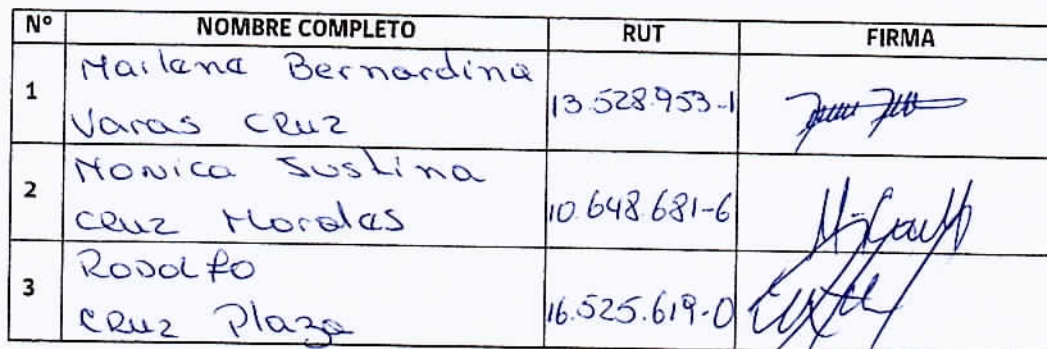 Nº NOMBRE COMPLETO RUT FIRMA
1 Marlene Bernardina
Varas Cruz 13.528.953-1
2 Monica Justina
Cruz Morales 10.648.681-6
3 Rodolfo
Cruz Plaza 16.525.619-0